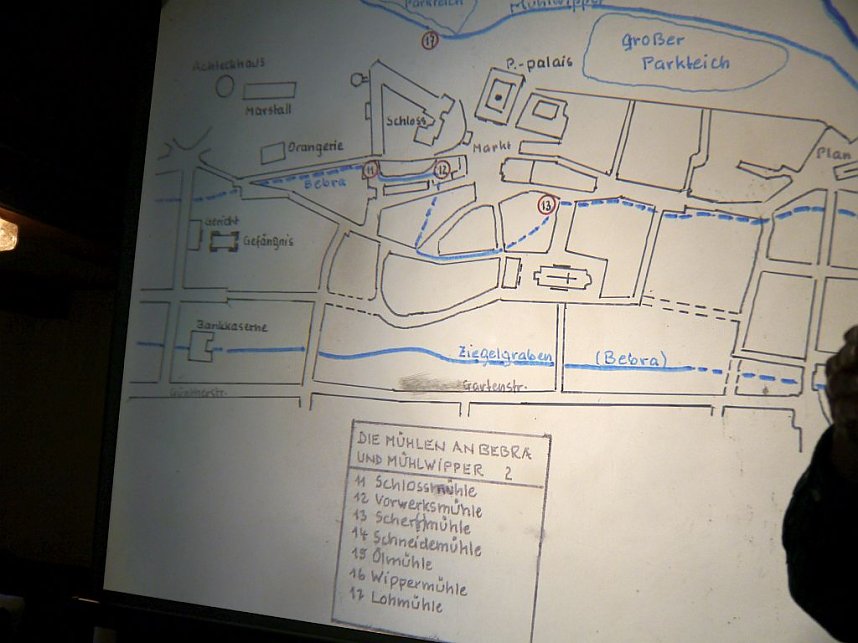 Parkteich
Mühlwipper
17
Großer
Parkteich
Achteckhaus
Marstall
P.-palais
Schloss
Markt
Plan
Orangerie
11
12
Bebra
13
Gericht
Gefängnis
Zankkaserne
Ziegelgraben
(Bebra)
Gartenstr.
Güntherstr.
DIE MÜHLEN AN BEBRA
UND MÜHLWIPPER 2
11 Schlossmühle
12 Vorwerksmühle
13 Scherfmühle
14 Schneidemühle
15 Ölmühle
16 Wippermühle
17 Lohmühle